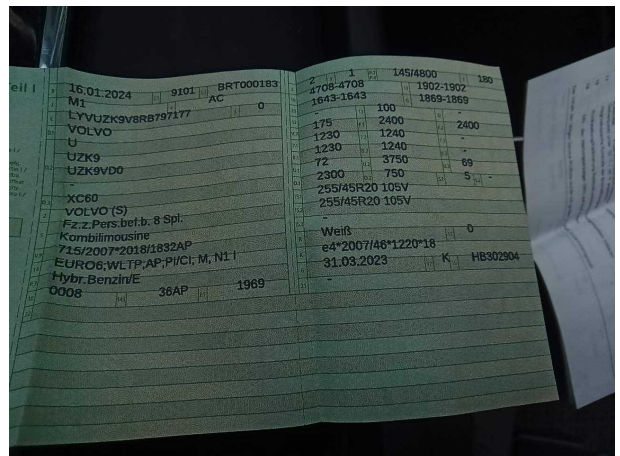 Teil I
16.01.2024 9101 BRT000183
M1 AC
LYVUZK9V8RB797177 0
VOLVO
U
UZK9
UZK9VD0
-
XC60
VOLVO (S)
Fz.z.Pers.bef.b. 8 Spl.
Kombilimousine
715/2007*2018/1832AP
EURO6;WLTP;AP;PI/CI, M, N1 I
Hybr.Benzin/E
0008 36AP 1969
2 1 145/4800 180
4708-4708 1902-1902
1643-1643 1869-1869
- 100 -
175 2400 2400
1230 1240 -
1230 1240 -
72 3750 69
2300 750 5 -
255/45R20 105V
255/45R20 105V
-
Weiß 0
e4*2007/46*1220*18
31.03.2023 K HB302904
-